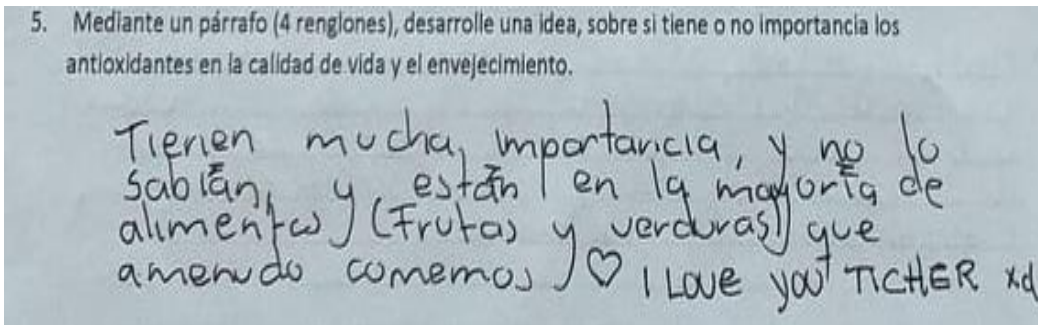 5. Mediante un párrafo (4 renglones), desarrolle una idea, sobre si tiene o no importancia los
antioxidantes en la calidad de vida y el envejecimiento.
Tienen mucha importancia, y no lo
sabían, y están en la mayoría de
alimentos (Frutas y verduras) que
amenudo comemos ♡ I Love you TICHER xd